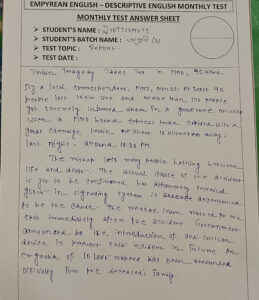 EMPYREAN ENGLISH – DESCRIPTIVE ENGLISH MONTHLY TEST
MONTHLY TEST ANSWER SHEET
➤ STUDENT'S NAME :
➤ STUDENT'S BATCH NAME :
➤ TEST TOPIC : Report
➤ TEST DATE :
Train Tragedy Takes Toll in MNO, 92 killed
By a local correspondent, MNO, : At least 92
people lost their lives and more than 100 people
got severely injured when in a gruesome mishap
when a MNO bound express train collided with a
goods carriage train at about 10 kilometre away,
last night, around 10:30 PM
The mishap left many people battling between
life and death. The actual cause of the accident
is yet to be confirmed, but apparently technical
in signalling system is
to be the cause. The rescue team rushed to the
spot immediately after the accident. Government
announced to the introduction of anti collision
device to prevent such incident in future. An
ex-gratia of 10 lakh rupees has been announced
officially for the deceased's family.